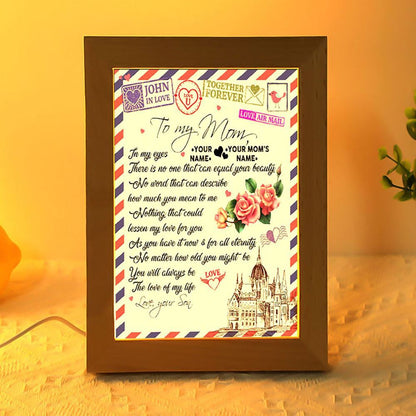 JOHN
IN LOVE
love
TOGETHER
FOREVER
LOVE AIR MAIL
To my Mom,
•YOUR NAME• •YOUR MOM'S NAME•
In my eyes
There is no one that can equal your beauty
No word that can describe
how much you mean to me
Nothing that could
lessen my love for you
As you have it now & for all eternity
No matter how old you might be
You will always be
The love of my life
LOVE
Love, your Son